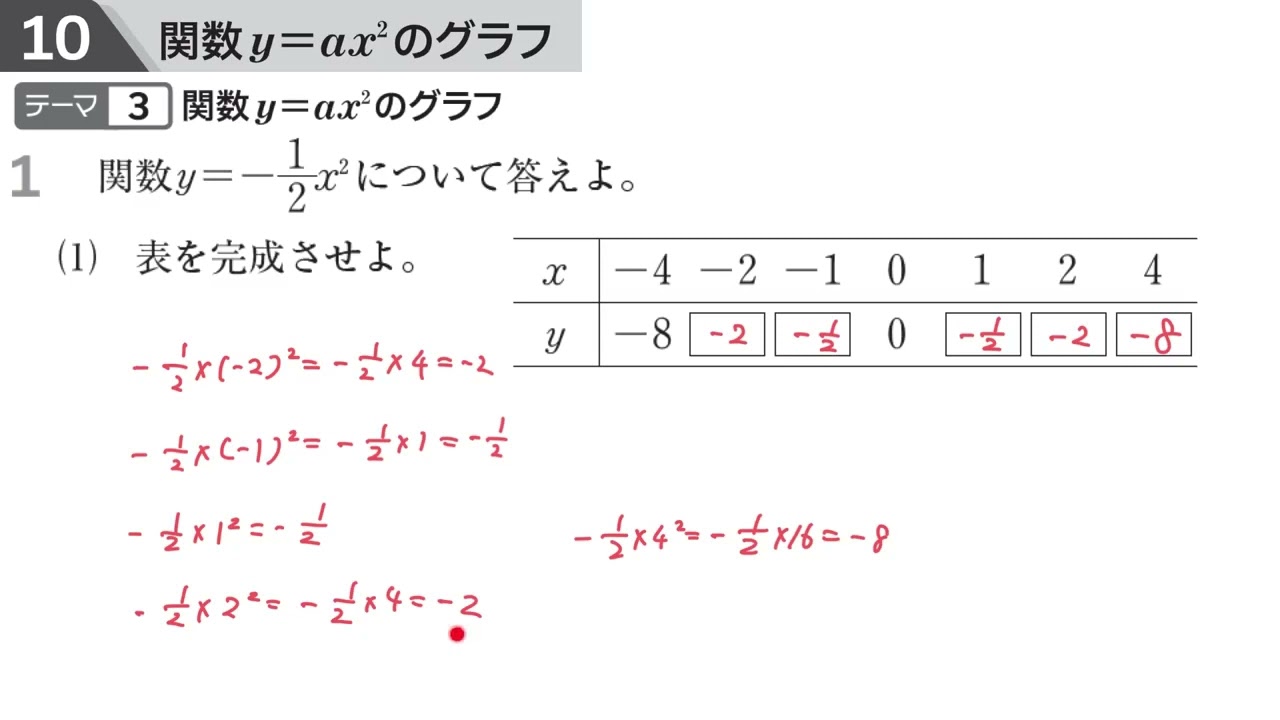 10 関数 y=ax²のグラフ
テーマ 3 関数 y=ax²のグラフ
1 関数y=-1/2x²について答えよ。
(1) 表を完成させよ。
x -4 -2 -1 0 1 2 4
y -8 -2 -1/2 0 -1/2 -2 -8
-1/2×(-2)²=-1/2×4=-2
-1/2×(-1)²=-1/2×1=-1/2
-1/2×1²=-1/2
-1/2×4²=-1/2×16=-8
-1/2×2²=-1/2×4=-2